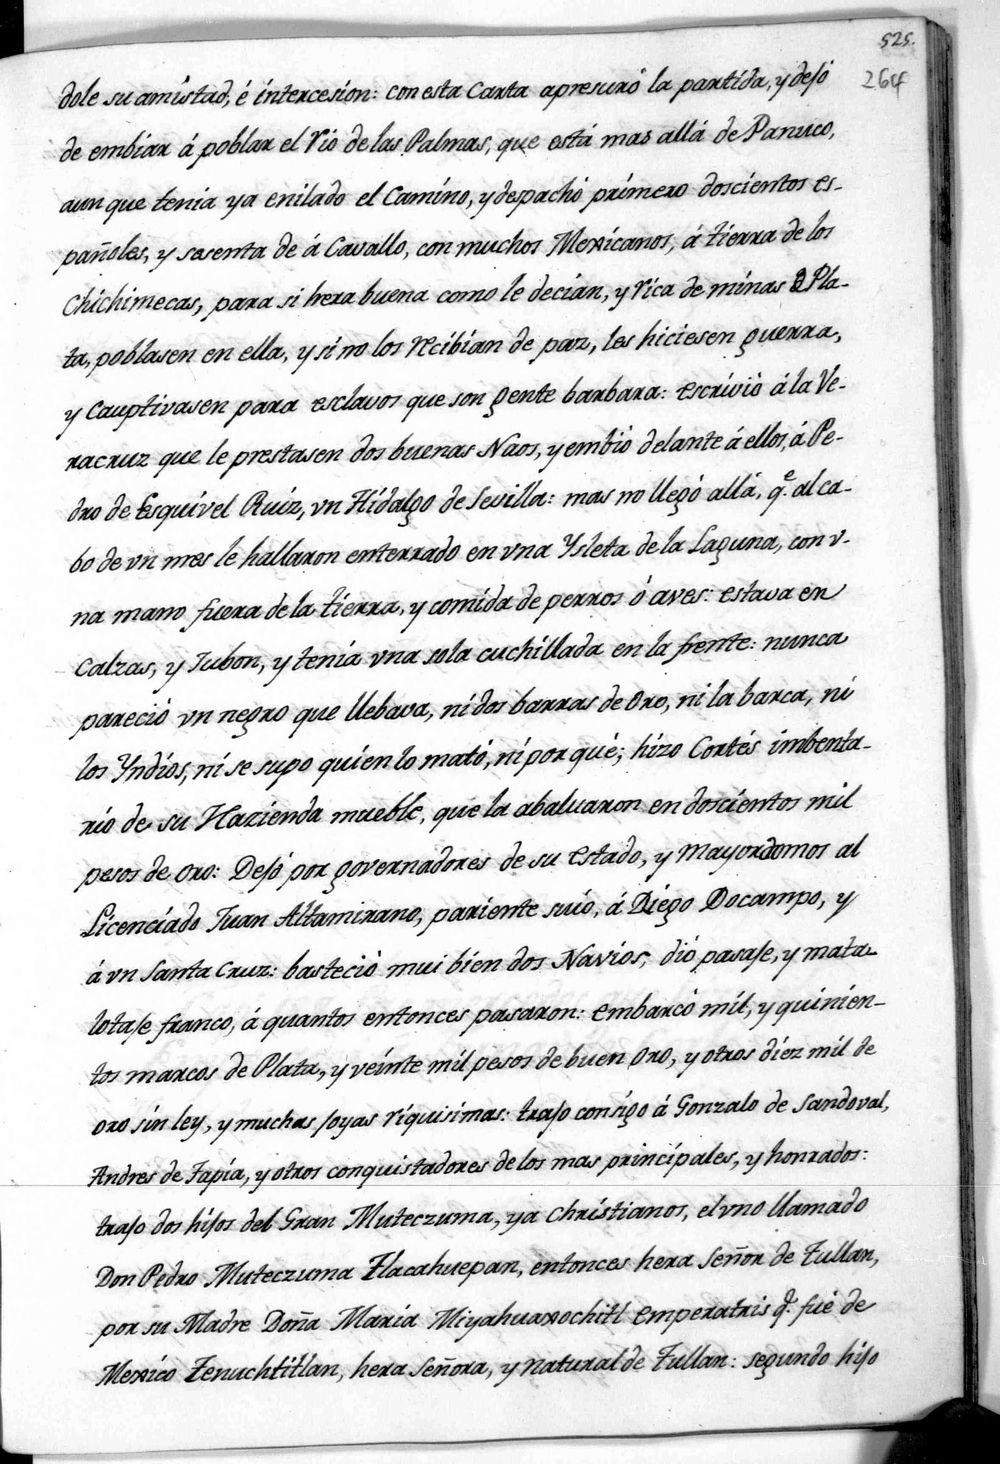 525.
264
dole su amistad, é intercesion: con esta Carta apresuró la partida, y dejó
de embiar á poblar el Rio de las Palmas, que está mas allá de Panuco,
aun que tenia ya enilado el Camino, y despachó primero doscientos es-
pañoles, y sesenta de á Cavallo, con muchos Mexicanos, á tierra de los
Chichimecas, para si hera buena como le decian, y rica de minas de Pla-
ta, poblasen en ella, y si no los recibian de paz, les hiciesen guerra,
y Cauptivasen para esclavos que son gente barbara: escrivió á la Ve-
racruz que le prestasen dos buenas Naos, y embió delante á ellos, á Pe-
dro de Esquivel Ruiz, vn Hidalgo de Sevilla: mas no llegó allá, q.e al ca-
bo de vn mes le hallaron enterrado en vna Ysleta de la Laguna, con v-
na mano fuera de la tierra, y comida de perros ó aves: estava en
Calzas, y Jubon, y tenia vna sola cuchillada en la frente: nunca
pareció vn negro que llebava, ni dos barras de Oro, ni la barca, ni
los Yndios, ni se supo quien lo mató, ni por qué; hizo Cortés imbenta-
rio de su Hazienda mueble, que la abaluaron en doscientos mil
pesos de oro: Dejó por governadores de su estado, y Mayordomos al
Licenciado Juan Altamirano, pariente suio, á Diego Docampo, y
á vn Santa Cruz: basteció mui bien dos Navios, dió pasaje, y mata
lotaje franco, á quantos entonces pasaron: embarcó mil, y quinien-
tos marcos de Plata, y veinte mil pesos de buen Oro, y otros diez mil de
oro sin ley, y muchas joyas riquisimas: trajo consigo á Gonzalo de Sandoval,
Andres de Tapia, y otros conquistadores de los mas principales, y honrados:
trajo dos hijos del Gran Muteczuma, ya Christianos, el vno llamado
Don Pedro Muteczuma Tlacahuepan, entonces hera Señor de Tullan,
por su Madre Doña Maria Miyahuaxochitl Emperatris q.e fué de
Mexico Tenuchtitlan, hera Señora, y natural de Tullan: segundo hijo